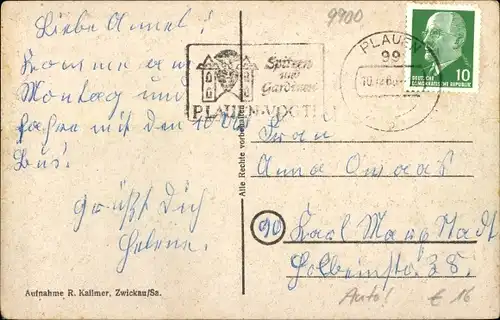 9900
Liebe Annel!
Komme am
Montag um
fahre mit den 10 Uhr
Bus!
Grüßt Dich
Helene.
Aufnahme R. Kallmer, Zwickau/Sa.
Alle Rechte vorbehalten
Spitzen
und
Gardinen
PLAUEN-VOGTL
PLAUEN
99
DEUTSCHE
DEMOKRATISCHE REPUBLIK
10
Frau
Anna
90 Karl Marx Stadt
Holbeinstr. 38.
Auto! € 16